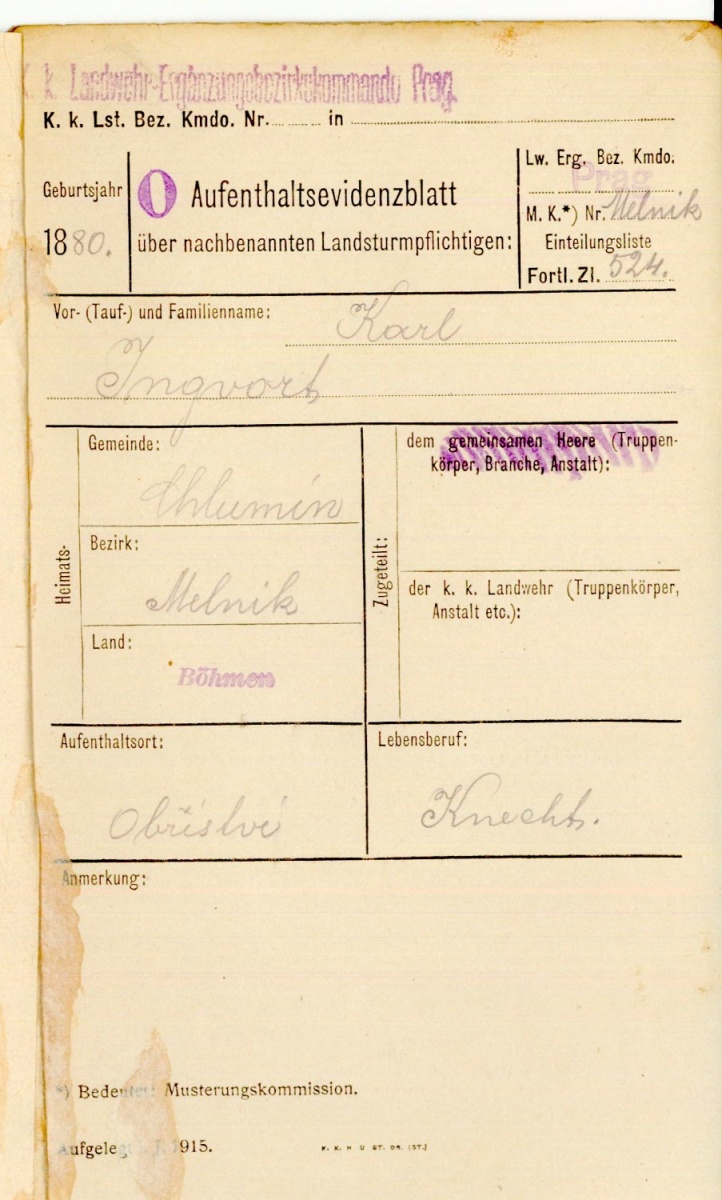 k. k. Landwehr-Ergänzungsbezirkskommando Prag.
K. k. Lst. Bez. Kmdo. Nr. in
Geburtsjahr
1880.
O Aufenthaltsevidenzblatt
über nachbenannten Landsturmpflichtigen:
Lw. Erg. Bez. Kmdo.
Prag
M. K.*) Nr. Melnik
Einteilungsliste
Fortl. Zl. 524.
Vor- (Tauf-) und Familienname: Karl
Ingvort
Heimats-
Gemeinde:
Chlumín
Bezirk:
Melnik
Land:
Böhmen
Zugeteilt:
dem gemeinsamen Heere (Truppen-
körper, Branche, Anstalt):
der k. k. Landwehr (Truppenkörper,
Anstalt etc.):
Aufenthaltsort:
Obříství
Lebensberuf:
Knecht.
Anmerkung:
*) Bedeutet: Musterungskommission.
Aufgelegt i. J. 1915.
K. K. H U ST. DR. (ST.)